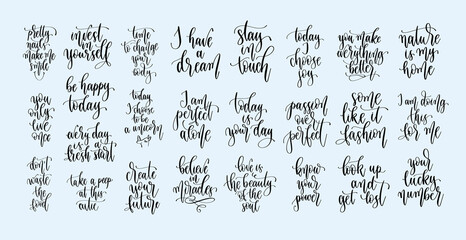 pretty
nails
make me
smile
invest
in
yourself
time
to change
your
body
I have
a
dream
stay
in
touch
today
I
choose
joy
you make
everything
better
nature
is my
home
you
only
live
once
be happy
today
every day
is a
fresh start
today
I choose
to be
a unicorn
I am
perfect
alone
today
is
your day
passion
over
perfect
some
like it
fashion
I am doing
this
for me
don't
waste
the
food
take a
peep at
this
attic
create
your
future
believe
in
miracles
love is
the beauty
of the
soul
know
your
power
look up
and
get lost
your
lucky
number